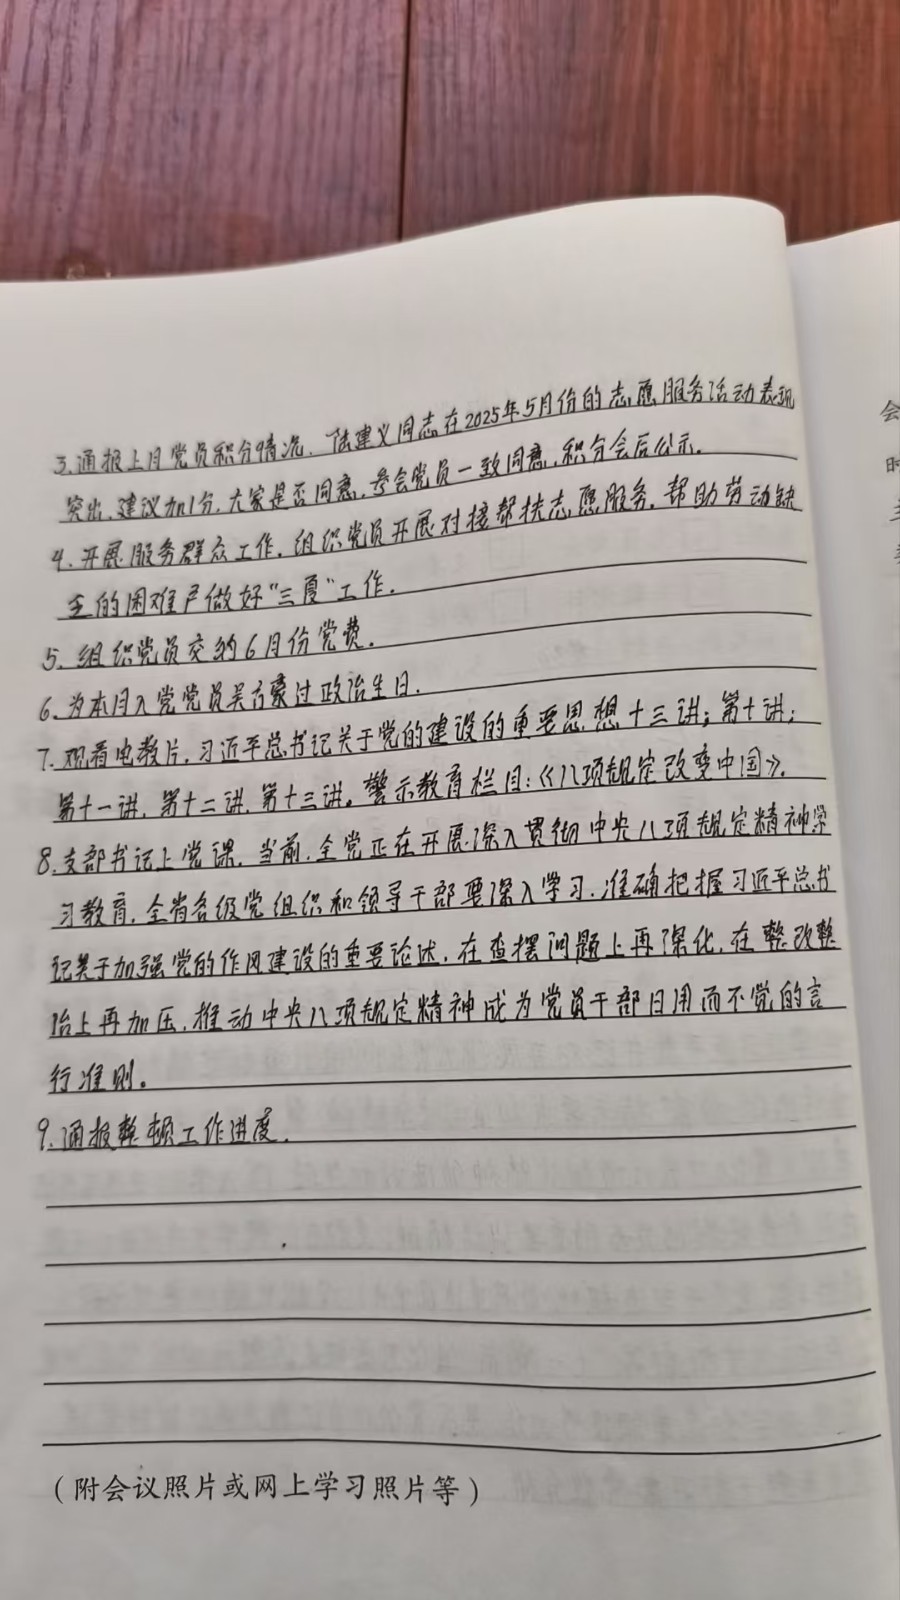 3.通报上月党员积分情况.陆建义同志在2025年5月份的志愿服务活动表现
突出,建议加1分,大家是否同意,参会党员一致同意,积分会后公示.
4.开展服务群众工作.组织党员开展对接帮扶志愿服务.帮助劳动缺
乏的困难户做好"三夏"工作.
5.组织党员交纳6月份党费.
6.为本月入党党员吴方豪过政治生日.
7.观看电教片.习近平总书记关于党的建设的重要思想十三讲;第十讲;
第十一讲.第十二讲.第十三讲。警示教育栏目:《八项规定改变中国》.
8.支部书记上党课.当前.全党正在开展深入贯彻中央八项规定精神学
习教育.全省各级党组织和领导干部要深入学习.准确把握习近平总书
记关于加强党的作风建设的重要论述.在查摆问题上再深化.在整改整
治上再加压.推动中央八项规定精神成为党员干部日用而不觉的言
行准则。
9.通报整顿工作进度.
(附会议照片或网上学习照片等)
会
时